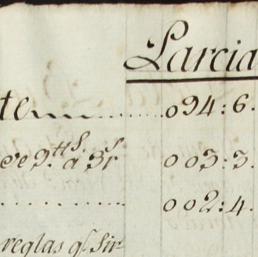 Parcia
te ........ 094:6.
ve 9.tt.s a 3r 003:3.
........ 002:4.
reglas q.e Sir